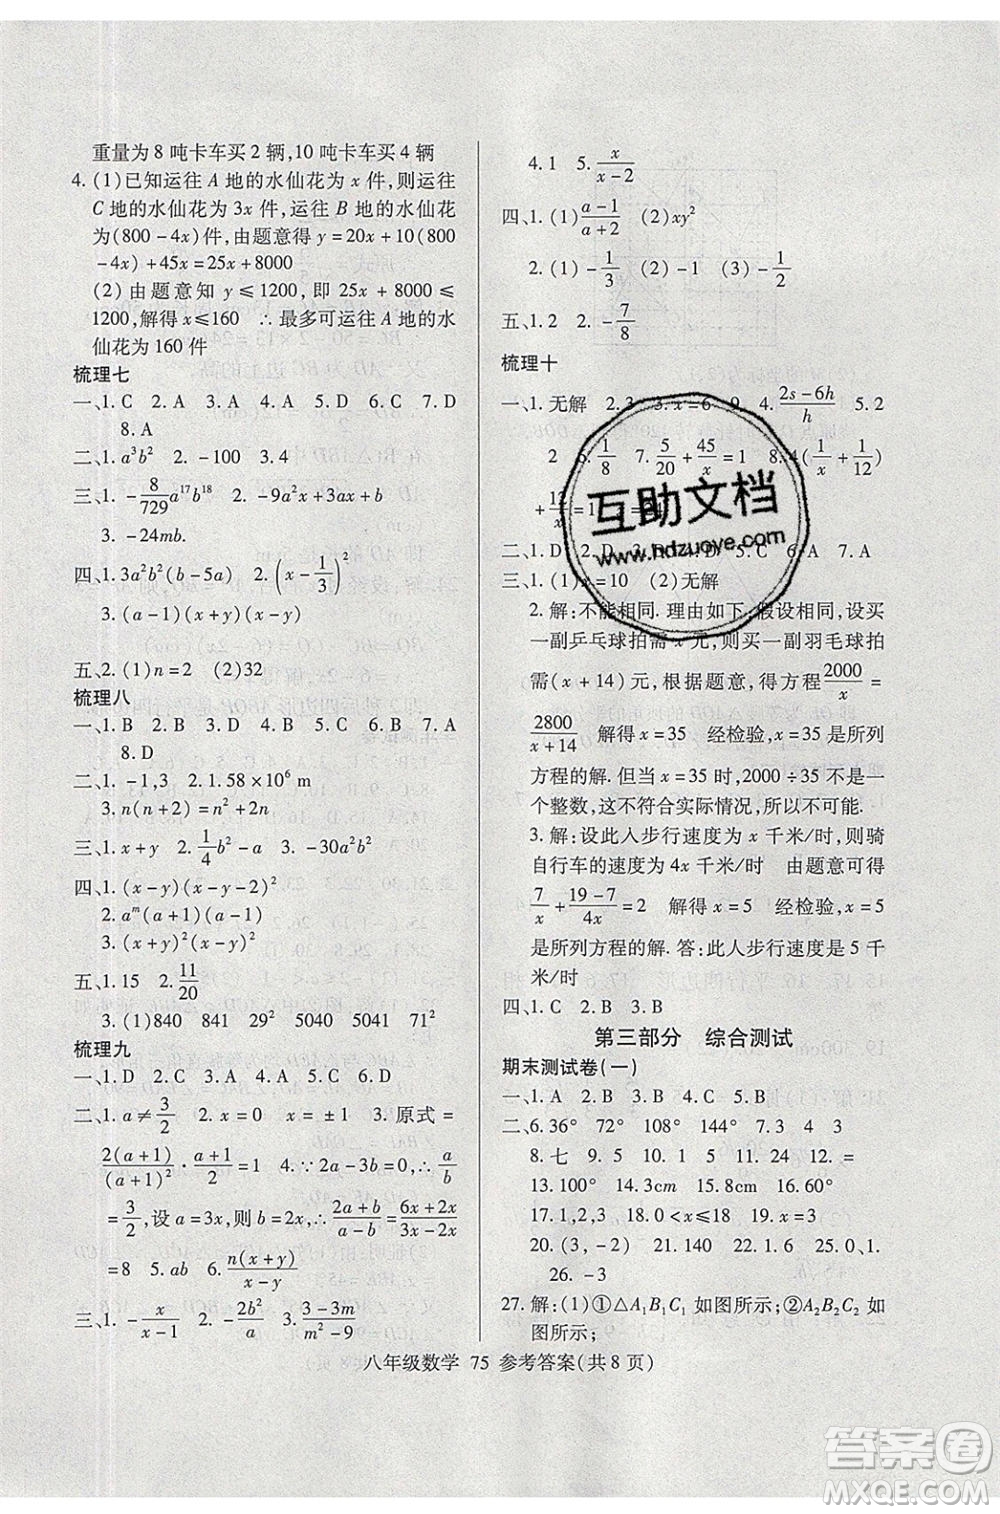 重量为 8 吨卡车买 2 辆,10 吨卡车买 4 辆
4. (1)已知运往 A 地的水仙花为 x 件,则运往
C 地的水仙花为 3x 件,运往 B 地的水仙花
为(800-4x)件,由题意得 y=20x+10(800
-4x)+45x=25x+8000
(2) 由题意知 y≤1200, 即 25x+8000≤
1200,解得 x≤160 ∴最多可运往 A 地的水
仙花为 160 件
梳理七
一、1. C 2. A 3. A 4. A 5. D 6. C 7. D
8. A
二、1. a³b² 2. -100 3. 4
三、1. -8/729 a¹⁷b¹⁸ 2. -9a²x+3ax+b
3. -24mb.
四、1. 3a²b²(b-5a) 2. (x-1/3)²
3. (a-1)(x+y)(x-y)
五、2. (1)n=2 (2)32
梳理八
一、1. B 2. B 3. D 4. A 5. D 6. B 7. D
8. D
二、1. -1,3 2. 1.58×10⁶ m
3. n(n+2)=n²+2n
三、1. x+y 2. 1/4 b²-a 3. -30ab²
四、1. (x-y)(x-y-2)²
2. aᵐ(a+1)(a-1)
3. (x+y)²(x-y)²
五、1. 15 2. 11/20
3. (1)840 841 29² 5040 5041 71²
梳理九
一、1. D 2. A 3. C 4. C 5. A 6. C
二、1. a≠3/2 2. x=0 x=±1 3. 原式=
2(a+1)/(a+1)²·(a+1)/2=1 4. ∵2a-3b=0,a/b
=3/2,设 a=3x,则 b=2x,∴(2a+b)/(a-b)=(6x+2x)/(3x-2x)
=8 5. ab 6. n(x+y)/(x-y)
三、1. -x/(x-1) 2. -2b²/a 3. (3-3m)/(m²-9)
4. 1 5. x/(x-2)
四、1. (1)(a-1)/(a+2) (2)xy²
2. (1)-1/3 (2)-1 (3)-1/a
五、1. 2 2. -7/8
梳理十
一、1. 无解 2. 3 3. x=6 9 4. (2s-6h)/h 5. 2
2 6. 1/8 7. 5/20+45/x=1 8. 4(1/x+1/)
+12/=1
二、1. D 2. D 4. D 5. B 6. A 7. A
三、1. (1)x=10 (2)无解
2. 解:不能相同. 理由如下:假设相同,设买
一副乒乓球拍需 x 元,则买一副羽毛球拍
需(x+14)元,根据题意,得方程2000/x=
2800/(x+14) 解得 x=35 经检验,x=35 是所列
方程的解. 但当 x=35 时,2000÷35 不是一
个整数,这不符合实际情况,所以不可能.
3. 解:设此人步行速度为 x 千米/时,则骑
自行车的速度为 4x 千米/时 由题意可得
7/x+(19-7)/4x=2 解得 x=5 经检验,x=5
是所列方程的解. 答:此人步行速度是 5 千
米/时
四、1. C 2. B 3. B
第三部分 综合测试
期末测试卷(一)
一、1. A 2. B 3. B 4. C 5. B
二、6. 36° 72° 108° 144° 7. 3 4 3
8. 七 9. 25 10. 15 11. 24 12. =
13. 100° 14. 65° 15. 9 cm 16. 20°
17. 1,2,3 18. 0<x≤18 19. x=3
20. (3,-2) 21. 40 22. 1.6 23. D 25. A
26. -3
27. 解:(1)①△A₁B₁C₁ 如图所示;②A₂B₂C₂ 如
图所示;
八年级数学 75 参考答案(共 8 页)
互助文档
www.hdzuoye.com
答案卷
MXQE.COM